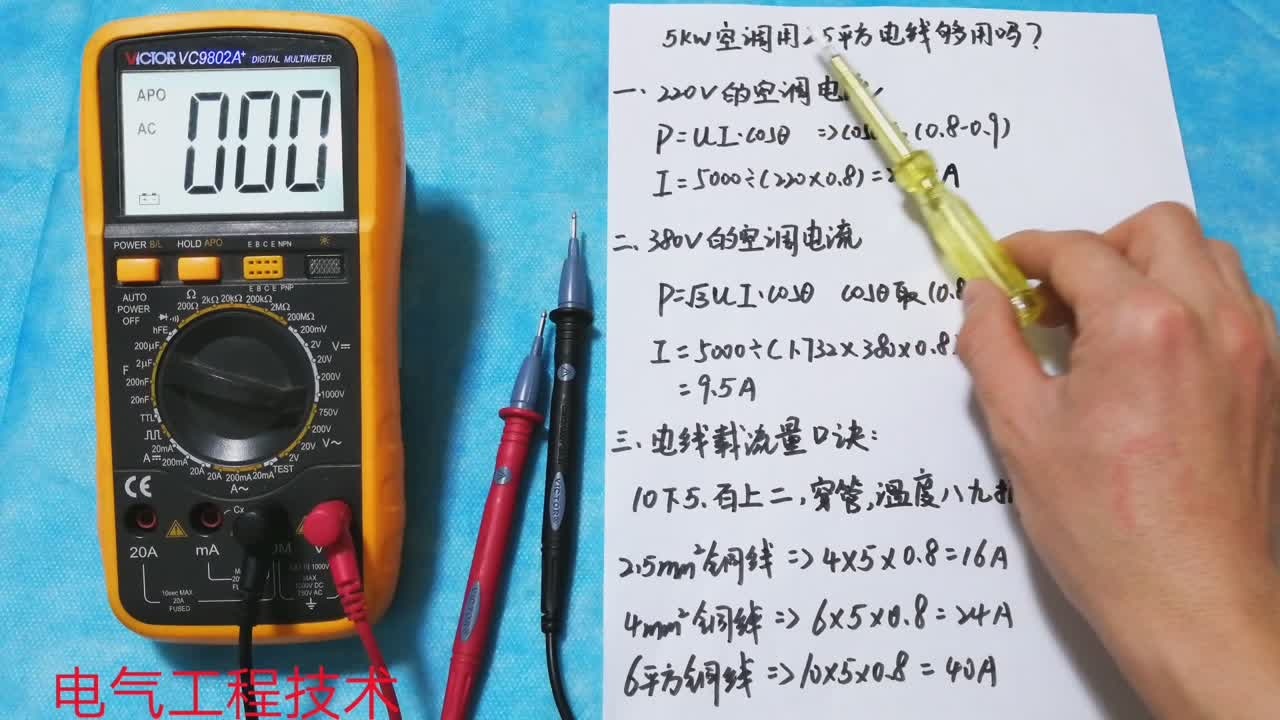 VICTOR VC9802A+ DIGITAL MULTIMETER
APO
AC
000
POWER B/L HOLD APO E B C E NPN
E B C E PNP
AUTO POWER OFF
Ω
200Ω 2kΩ 20kΩ 200kΩ 2MΩ 200MΩ
hFE
200μF
2μF
F
200nF
20nF
TTL
20mA
A
200mA
20A
20A
200mA
20mA
A~
TEST
200mV
2V
V
20V
200V
1000V
750V
200V
V~
20V
2V
CE
Cx
20A mA V
10sec MAX
20A
FUSED
MAX
1000V DC
750V AC
VICTOR
电气工程技术
5KW空调用2.5平方电线够用吗?
一、220V的空调电
P=UI·cosθ => (0.8-0.9)
I=5000÷(220×0.8)= A
二、380V的空调电流
P=√3UI·cosθ cosθ取(0.8
I=5000÷(1.732×380×0.8
=9.5A
三、电线载流量口诀:
10下5.百上二,穿管,温度八九
2.5mm²铜线=>4×5×0.8=16A
4mm²铜线=>6×5×0.8=24A
6平方铜线=>10×5×0.8=40A